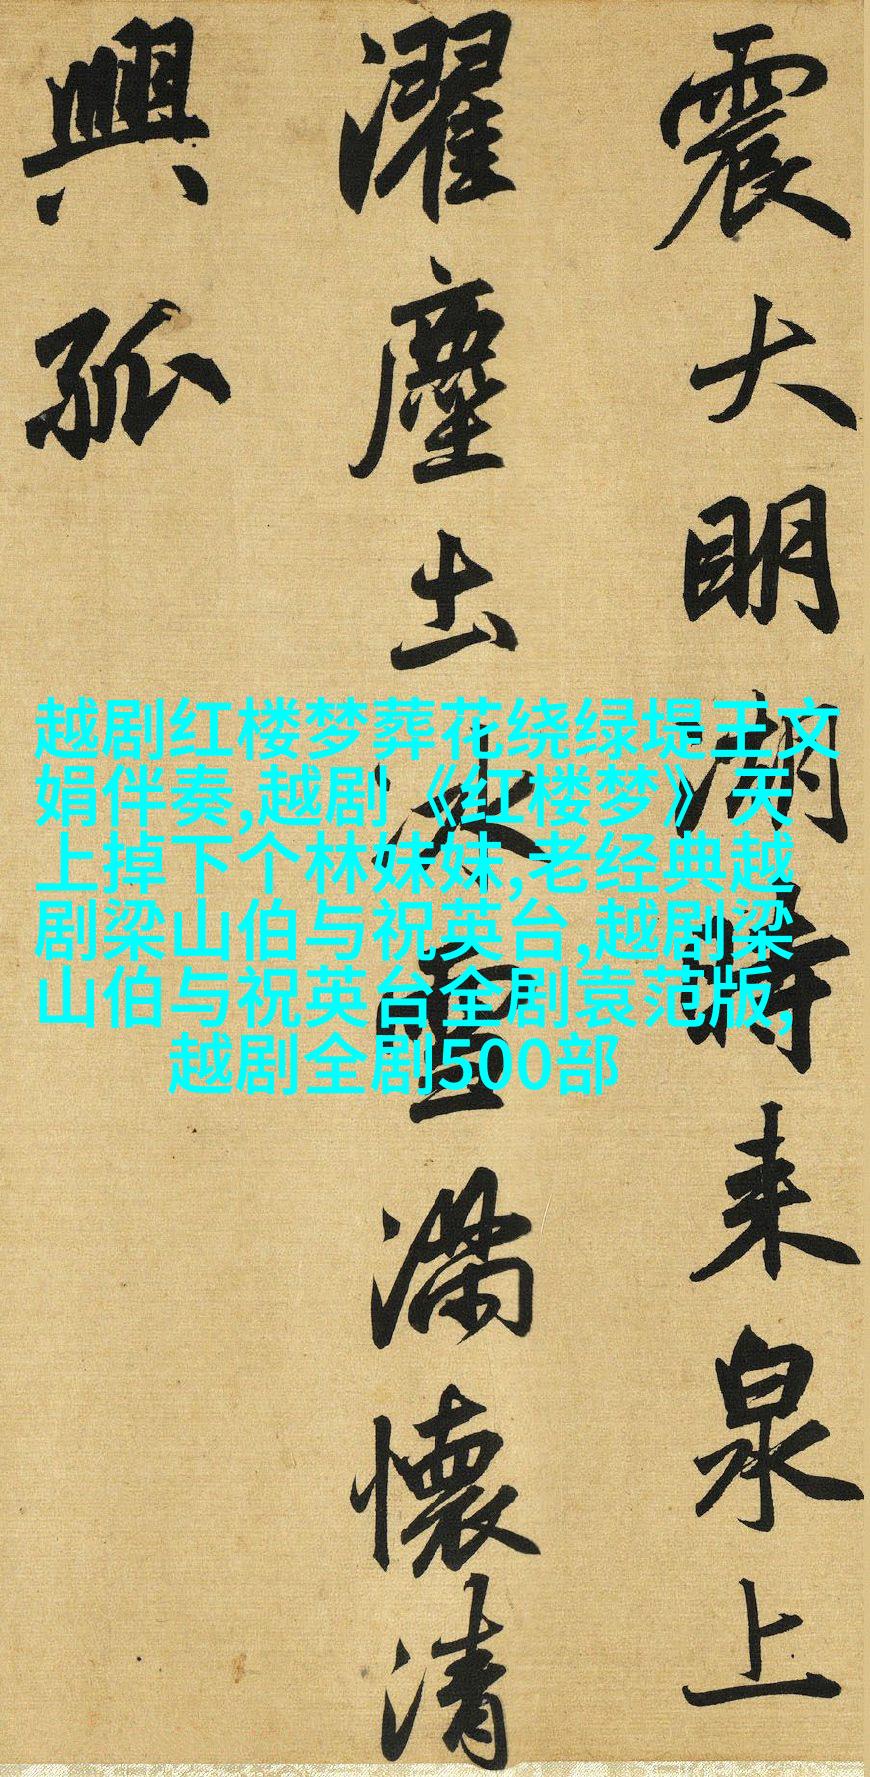 震大明湖時来泉上
濯塵土冰雪滿懷清
興孤
越剧红楼梦葬花绕绿堤王文
娟伴奏,越剧《红楼梦》天
上掉下个林妹妹,老经典越
剧梁山伯与祝英台,越剧梁
山伯与祝英台全剧袁范版,
越剧全剧500部